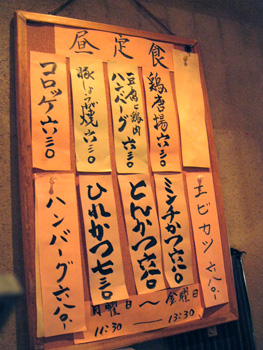 昼定食
鶏唐揚 六三〇
豆腐と鶏肉
ハンバーグ 六三〇
豚しょうが焼 六三〇
コロッケ 六三〇
エビカツ 六八〇-
ミンチかつ 六八〇
とんかつ 六八〇
ひれかつ 七三〇
ハンバーグ 六八〇-
月曜日〜金曜日
11:30 — 13:30